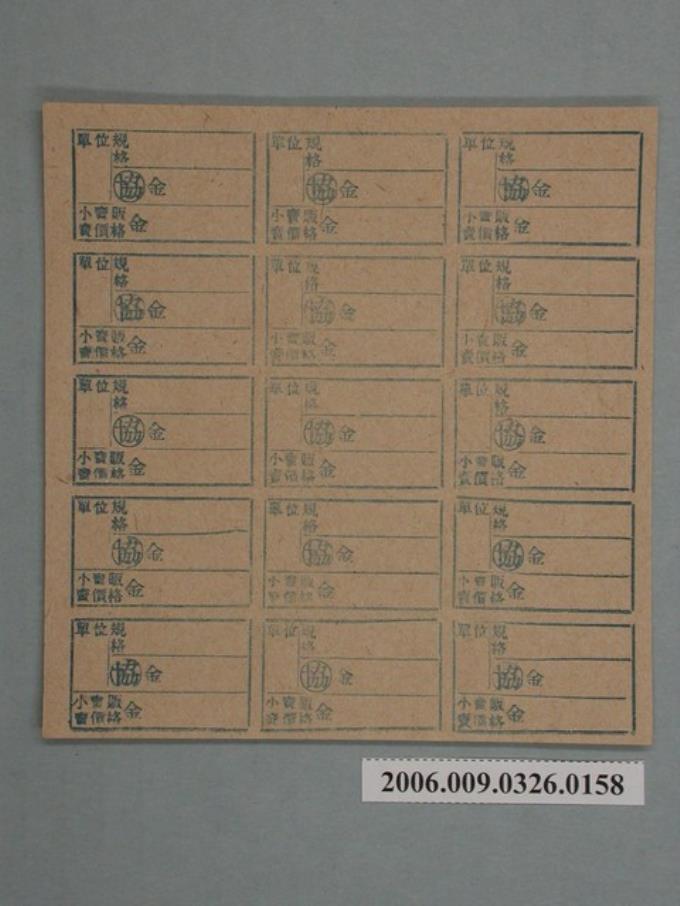 單位 規格 單位 規格 單位 規格
協 金 協 金 協 金
小賣販賣價格 金 小賣販賣價格 金 小賣販賣價格 金
單位 規格 單位 規格 單位 規格
協 金 協 金 協 金
小賣販賣價格 金 小賣販賣價格 金 小賣販賣價格 金
單位 規格 單位 規格 單位 規格
協 金 協 金 協 金
小賣販賣價格 金 小賣販賣價格 金 小賣販賣價格 金
單位 規格 單位 規格 單位 規格
協 金 協 金 協 金
小賣販賣價格 金 小賣販賣價格 金 小賣販賣價格 金
單位 規格 單位 規格 單位 規格
協 金 協 金 協 金
小賣販賣價格 金 小賣販賣價格 金 小賣販賣價格 金
2006.009.0326.0158